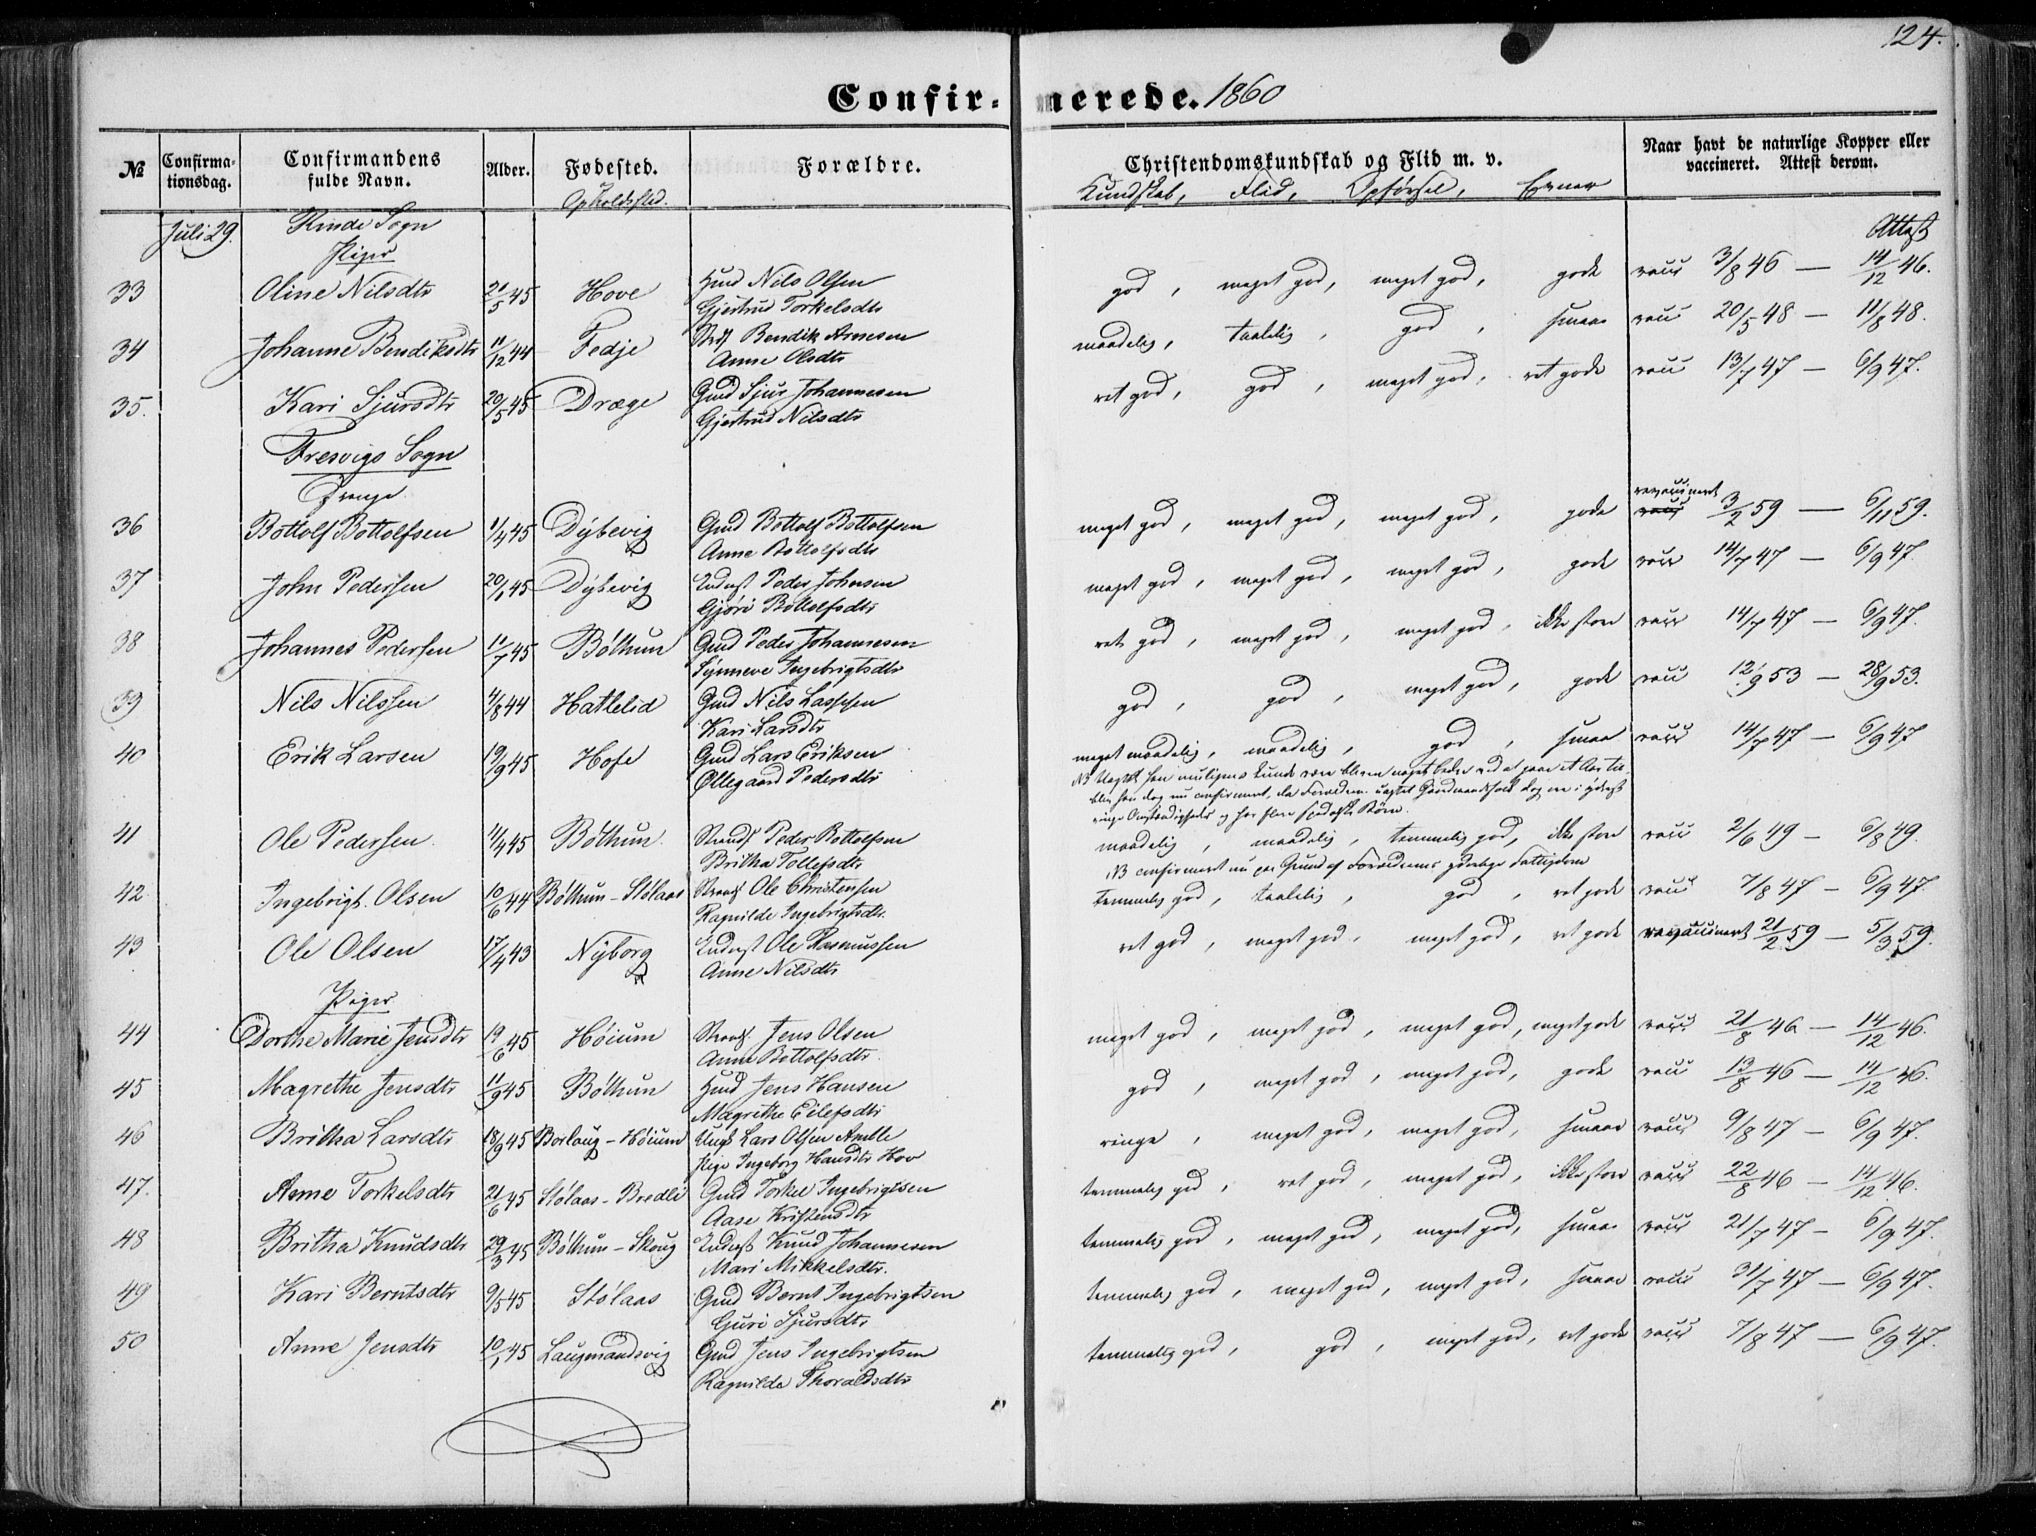 124.
Confirmerede. 1860
№ Confirmationsdag. Confirmandens fulde Navn. Alder. Fødested. Forældre. Christendomskundskab og Flid m. v. Naar havt de naturlige Kopper eller vaccineret. Attest derom.
Opholdssted. Kundskab, Flid, Opførsel, Evner
Juli 29. Rinde Sogn
Piger Attest
33 Oline Nilsdtr 21/5 45 Hove Huusmd Nils Olsen god, meget god, meget god, gode vacc 3/8 46 — 14/12 46.
Gjertrud Torkelsdtr
34 Johanne Bendiksdtr 11/12 44 Fedje Bendik Arnesen maadelig, taalelig, god, smaae vacc 20/5 48 — 11/8 48.
Anne Olsdtr
35. Kari Sjursdtr 20/5 45 Dræge Gmd Sjur Johannesen ret god, god, meget god, ret gode vacc 13/7 47 — 6/9 47.
Gjertrud Nilsdtr
Fresvigs Sogn
Drenge
36 Bottolf Bottolfsen 1/4 45 Dybevig Gmd Bottolf Bottolfsen meget god, meget god, meget god, gode revaccineret 3/2 59 — 6/11 59.
Anne Bottolfsdtr
37 John Pedersen 20/1 45 Dybevig Inderst Peder Johnsen meget god, meget god, meget god, gode vacc 14/7 47 — 6/9 47.
Gjøri Bottolfsdtr
38 Johannes Pedersen 11/7 45 Bøthun Gmd Peder Johannesen ret god, meget god, meget god, ikke store vacc 14/7 47 — 6/9 47.
Synneve Ingebrigtsdtr
39 Nils Nilssen 4/8 44 Hatlelid Gmd Nils Lasssen god, god, meget god, gode vacc 12/9 53 — 28/9 53.
Kari Larsdtr
40 Erik Larsen 19/9 45 Hofe Gmd Lars Eriksen meget maadelig, maadelig, god, smaae vacc 14/7 47 — 6/9 47
Øllegaard Pedersdtr
NB Uagtet han muligens kunde være bleven noget bedre ved at gaae et Aar til,
blev han dog nu confirmeret, da Forældrene uagtet Gaardmandsfolk dog ere i yderst
ringe Omstændigheder og har flere Børn.
41 Ole Pedersen 11/4 45 Bøthun. Strands Peder Bottolfsen maadelig, maadelig, temmelig god, ikke store vacc 2/6 49 — 6/8 49.
Britha Tollefsdtr
NB confirmeret nu paa Grund af Forældrenes yderlige Fattigdom
42. Ingebrigt Olsen 10/6 44 Bøthun - Stølaas Strands Ole Christensen temmelig god, taalelig, god, ret gode vacc 7/8 47 — 6/9 47.
Ragnilde Ingebrigtsdtr.
43 Ole Olsen 17/4 43 Nyborg Inderst Ole Rasmussen ret god, meget god, meget god, ret gode revaccineret 21/2 59 — 5/3 59.
Anne Nilsdtr
Piger
44 Dorthe Marie Jensdtr 19/6 45 Høium Strands. Jens Olsen meget god, meget god, meget god, meget gode vacc 21/8 46 — 14/12 46.
Anne Bottolfsdtr.
45 Magrethe Jensdtr 11/9 45 Bøthun Huusmd Jens Hansen god, meget god, meget god, gode vacc 13/8 46 — 14/12 46.
Magrethe Eilefsdtr
46 Britha Larsdtr 18/9 45 Borlaug - Høium Ungk Lars Olsen Amble ringe, meget god, meget god, smaae vacc 9/8 47 — 6/9 47.
Pige Ingeborg Hansdtr Hov
47. Anne Torkelsdtr 21/6 45 Stølaas - Bredli Gmd Torkel Ingebrigtsen temmelig god, ret god, meget god, ikke store vacc 22/8 46 — 14/12 46.
Aase Kristensdtr
48 Britha Knudsdtr 29/3 45 Bøthun - Skoug Inderst Knud Johannesen temmelig god, meget god, meget god, smaae vacc 21/7 47 — 6/9 47.
Mari Mikkelsdtr.
49 Kari Berntsdtr 9/5 45 Stølaas Gmd Bernt Ingebrigtsen temmelig god, meget god, meget god, smaae vacc 31/7 47 — 6/9 47.
Guri Sjursdtr
50 Anne Jensdtr 10/1 45 Laugmandsvig Gmd Jens Ingebrigtsen temmelig god, god, meget god, ret gode vacc 7/8 47 — 6/9 47.
Ragnilde Thoraldsdtr